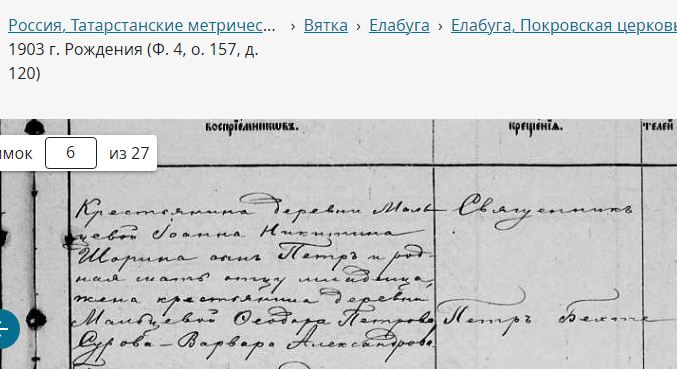 Россия, Татарстанские метричес... › Вятка › Елабуга › Елабуга, Покровская церковь
1903 г. Рождения (Ф. 4, о. 157, д.
120)
воспрiемниковъ.
крещенiя.
телей
имок 6 из 27
Крестьянина деревни Маль-
цевой Iоанна Никитина
Шорина сынъ Петръ и род-
ная мать отцу младенца,
жена крестьянина деревни
Мальцевой Ѳеодора Петрова
Сурова - Варвара Александрова.
Священникъ
Петръ Бехте